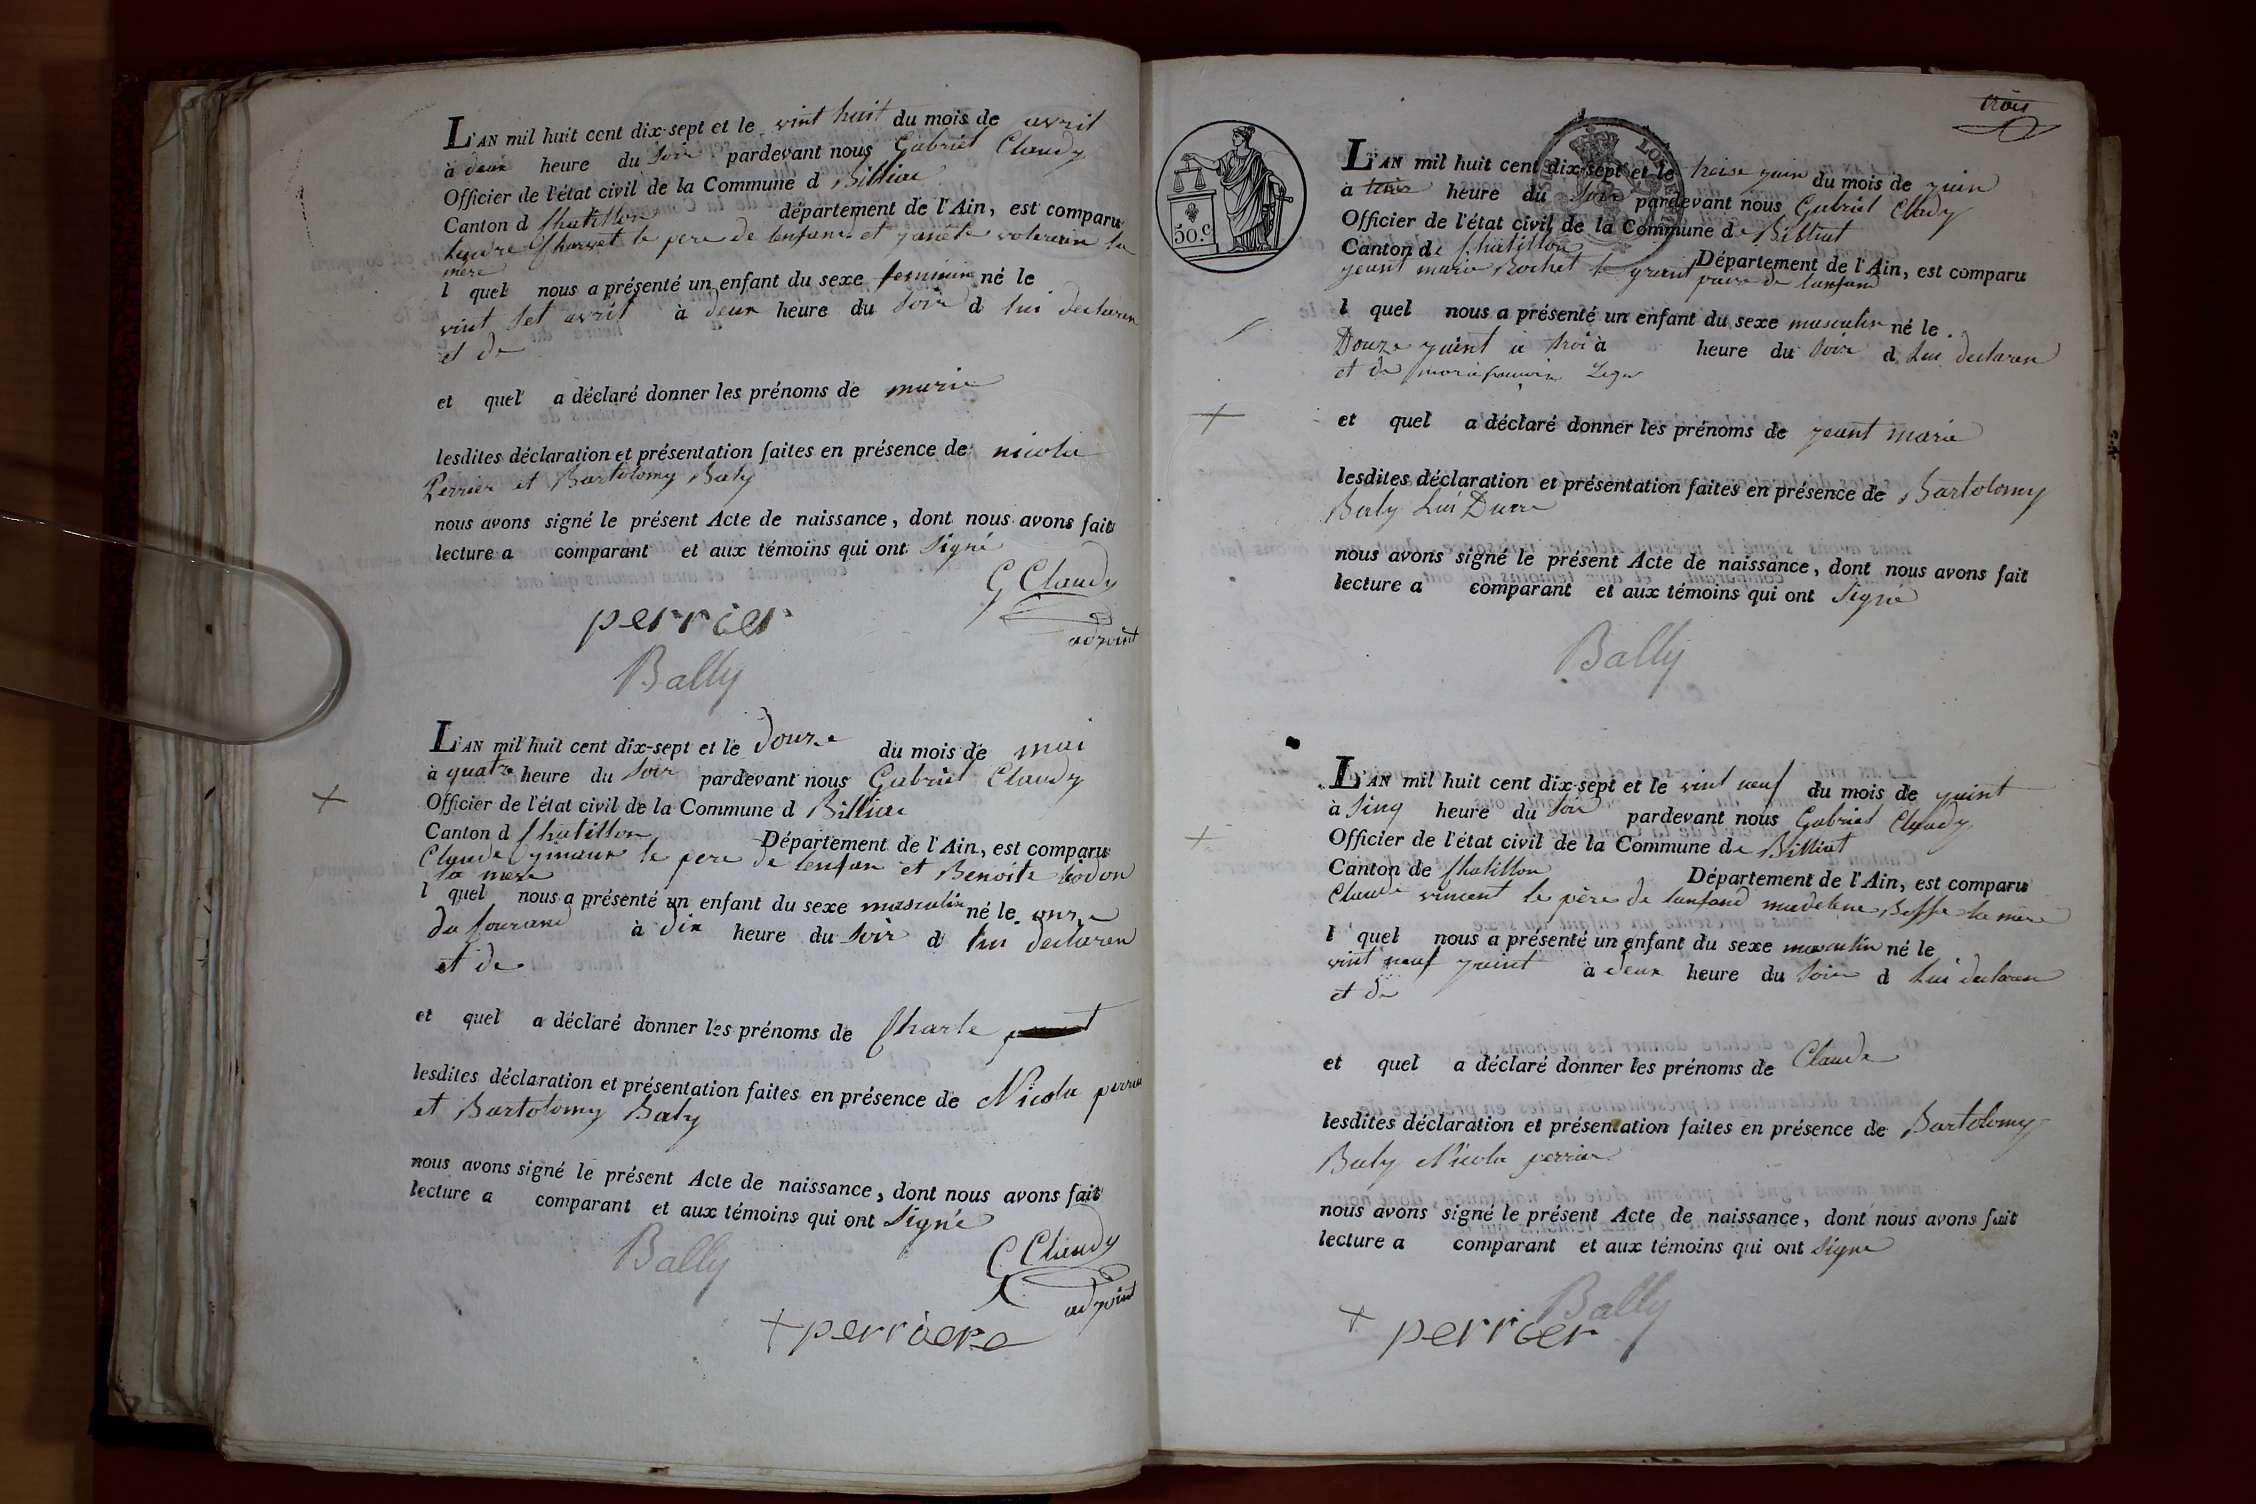 L'AN mil huit cent dix-sept et le vint huit du mois de avril
à deux heure du soir pardevant nous Gabriel Claudy
Officier de l'état civil de la Commune d Billiat
Canton d Chatillon département de l'Ain, est comparu
Charvet le pere de lenfant et
mère
l quel nous a présenté un enfant du sexe feminin né le
vint set avril à deux heure du soir d lui declaren
et de
et quel a déclaré donner les prénoms de marie
lesdites déclaration et présentation faites en présence de nicola
Perrier et Bartolomy Baly
nous avons signé le présent Acte de naissance, dont nous avons fait
lecture a comparant et aux témoins qui ont signé
G Claudy
perrier
adjoint
Bally
L'AN mil huit cent dix-sept et le douze du mois de mai
à quatre heure du soir pardevant nous Gabriel Claudy
Officier de l'état civil de la Commune d Billiat
Canton d Chatillon Département de l'Ain, est comparu
Claude le pere de lenfan et Benoite
la mere
l quel nous a présenté un enfant du sexe masculin né le onze
du courand à dix heure du soir d lui declaren
et de
et quel a déclaré donner les prénoms de Charle
lesdites déclaration et présentation faites en présence de Nicola perrier
et Bartolomy Baly
nous avons signé le présent Acte de naissance, dont nous avons fait
lecture a comparant et aux témoins qui ont signé
Bally
G Claudy
adjoint
+ perriere
trois
50.c
L'AN mil huit cent dix-sept et le treise juin du mois de juin
à heure du soir pardevant nous Gabriel Clady
Officier de l'état civil de la Commune de Billiat
Canton de Chatillon Département de l'Ain, est comparu
jeant marie Rochet le grant paire de lanfand
l quel nous a présenté un enfant du sexe masculin né le
Douze juint a troi à heure du soir d lui declaren
et de
et quel a déclaré donner les prénoms de jeant marie
lesdites déclaration et présentation faites en présence de Bartolomy
Baly Lui
nous avons signé le présent Acte de naissance, dont nous avons fait
lecture a comparant et aux témoins qui ont signé
Bally
L'AN mil huit cent dix-sept et le vint neuf du mois de juint
à sinq heure du soir pardevant nous Gabriel Claudy
Officier de l'état civil de la Commune de Billiat
Canton de Chatillon Département de l'Ain, est comparu
Claude vincent le père de lanfand madelene la mère
l quel nous a présenté un enfant du sexe masculin né le
vint neuf juint à deux heure du soir d lui declaren
et de
et quel a déclaré donner les prénoms de Claude
lesdites déclaration et présentation faites en présence de Bartolomy
Baly Nicola perrier
nous avons signé le présent Acte de naissance, dont nous avons fait
lecture a comparant et aux témoins qui ont signe
Bally
+ perrier